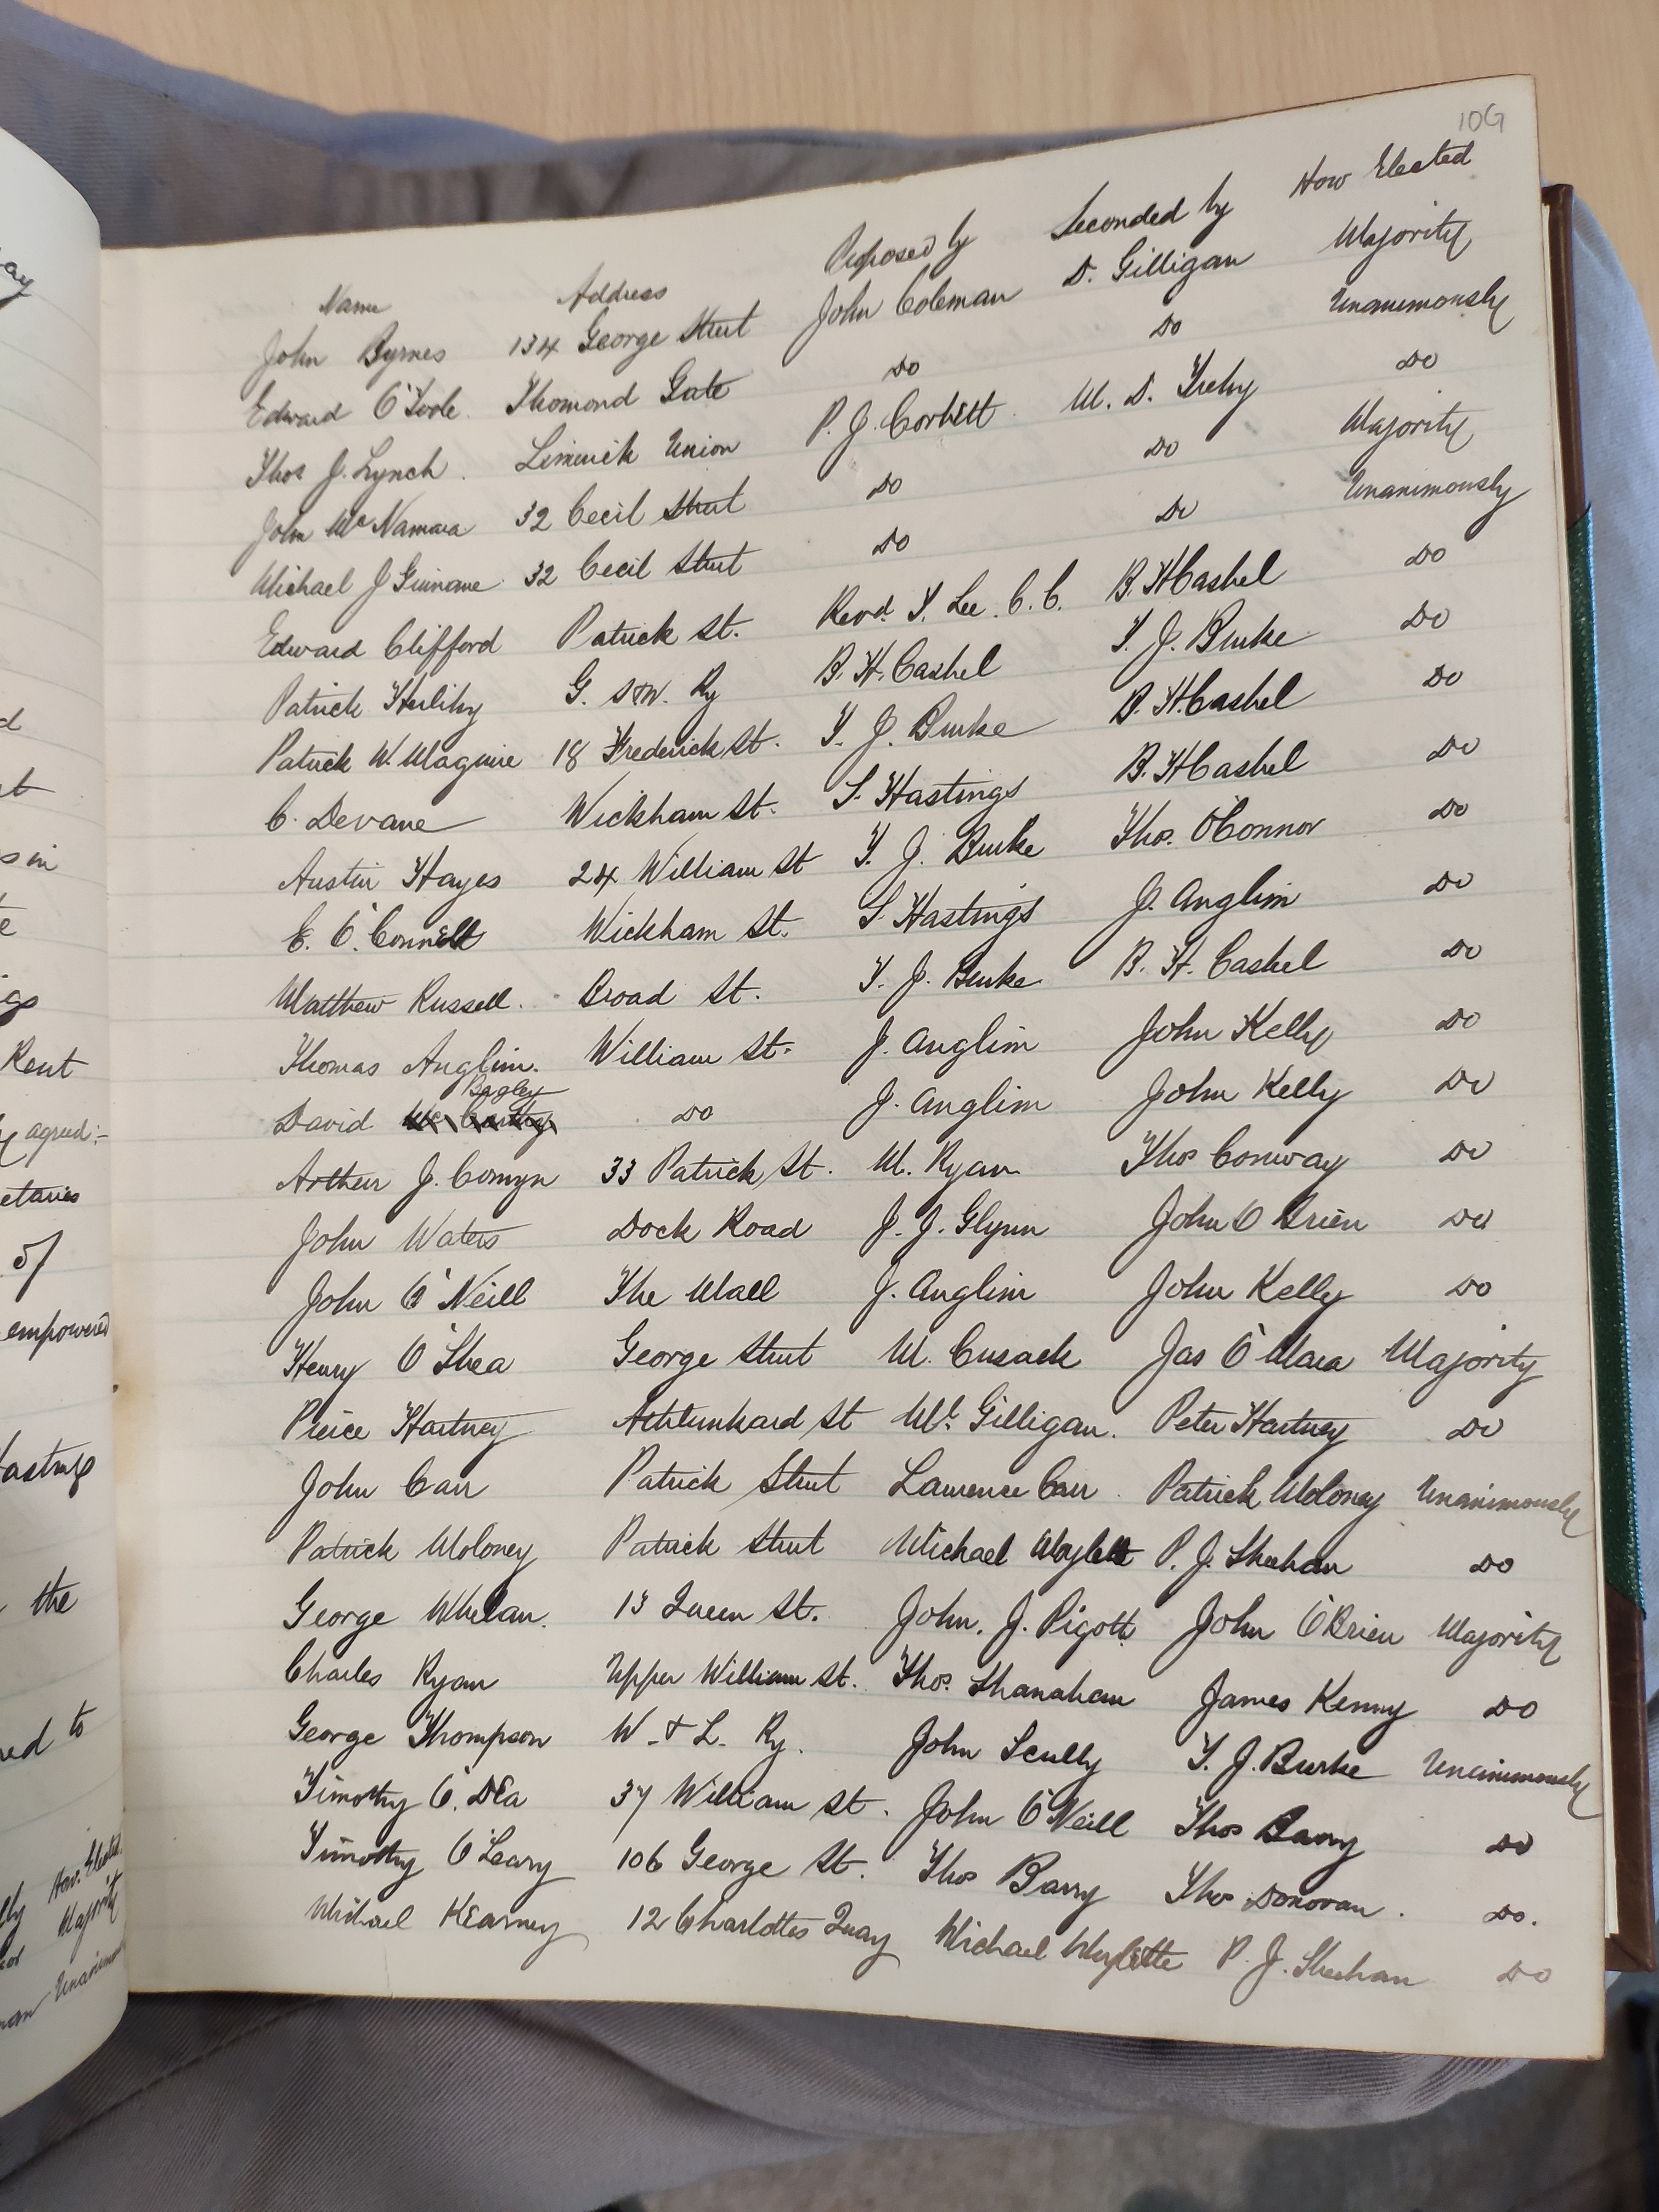 10G
Name Address Proposed by Seconded by How Elected
John Byrnes 134 George Street John Coleman D. Gilligan Majority
Edward O'Toole Thomond Gate Do Do Unanimously
Thos J. Lynch Limerick Union P. J. Corbett M. D. Do
John McNamara 32 Cecil Street Do Do Majority
Michael J Guinane 32 Cecil Street Do Do Unanimously
Edward Clifford Patrick St. Revd. T. Lee. C.C. B. H Cashel Do
Patrick Herlihy G. S & W. Ry B. H. Cashel T. J. Burke Do
Patrick W. Maguire 18 Frederick St. T. J. Burke B. H. Cashel Do
C. Devane Wickham St. S. Hastings B. H Cashel Do
Austin Hayes 24 William St T. J. Burke Thos. O'Connor Do
C. O'Connell Wickham St. S Hastings J. Anglim Do
Matthew Russell. Broad St. T. J. Burke B. H. Cashel Do
Thomas Anglim. William St. J. Anglim John Kelly Do
Bagley
David Mc Do J. Anglim John Kelly Do
Arthur J. Comyn 33 Patrick St. M. Ryan Thos Conway Do
John Waters Dock Road J. J. Glynn John O Brien Do
John O'Neill The Mall J. Anglim John Kelly Do
Henry O'Shea George Street M. Cusack Jas O'Mara Majority
Pierce Hartney Athlunkard St Ml. Gilligan. Peter Hartney Do
John Carr Patrick Street Lawrence Carr. Patrick Moloney Unanimously
Patrick Moloney Patrick Street Michael P. J. Sheehan Do
George Whelan. 13 Queen St. John. J. Pigott John O'Brien Majority
Charles Ryan Upper William St. Thos. Shanahan James Kenny Do
George Thompson W. & L. Ry. John Scully T. J. Burke Unanimously
Timothy O'Dea 37 William St. John O'Neill Thos Barry Do
Timothy O'Leary 106 George St. Thos Barry Thos Donovan. Do.
Michael Kearney 12 Charlottes Quay Michael P. J. Sheehan Do
s in
Rent
agreed:-
of
empowered
the
to
How Elected
Majority